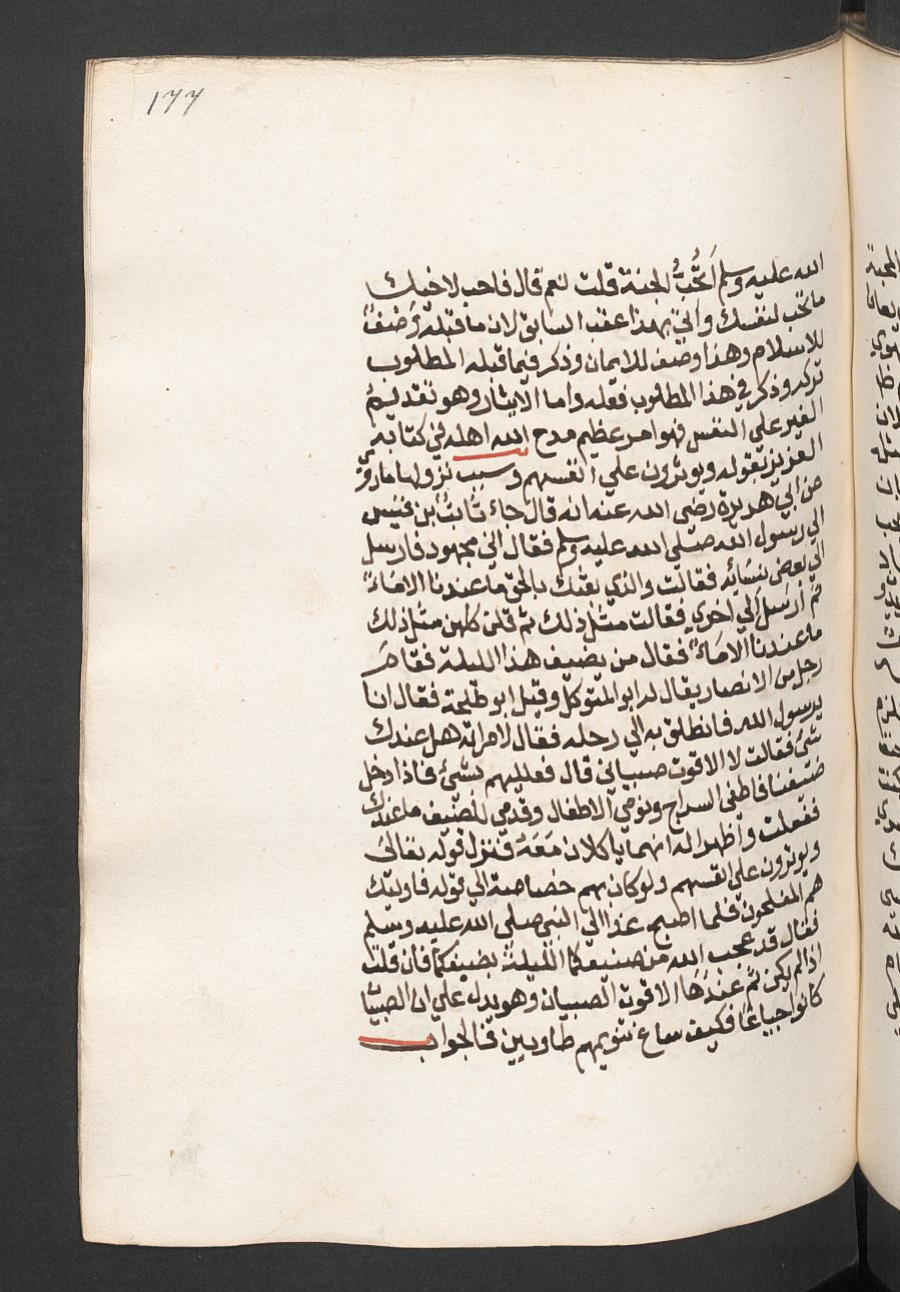 177
الله عليه وسلم اَتُحُبُّ الجنة قلت نعم قال فاحب لاخيك
ما تحب لنفسك واتي بهذا عقب السابق لان ما قبله وَصْفٌ
للاسلام وهذا وصف للايمان وذكر فيما قبله المطلوب
تركه وذكر في هذا المطلوب فعله واما الايثار وهو تقديم
الغير على النفس فهو امر عظيم مدح الله اهله في كتابه
العزيز بقوله ويوثرون علي انفسهم وسبب نزولها ما روي
عن ابي هريرة رضى الله عنه انه قال جاء ثابت بن قيس
الي رسول الله صلي الله عليه وسلم فقال اني مجهود فارسل
الي بعض نسائه فقالت والذي بعثك بالحق ما عندنا الا ماءٌ
ثم أرسل إلي اخري فقالت مثل ذلك ثم قلن كلهن مثل ذلك
ما عندنا الا ماءٌ فقال من يضيف هذا الليلة فقام
رجل من الانصار يقال له ابو المتوكل وقيل ابو طلحة فقال انا
يرسول الله فانطلق به الي رحله فقال لامراته هل عندك
شئ فقالت لا الا قوت صبياني قال فعلليهم بشئ فاذا دخل
ضيفنا فاطفى السراج ونومي الاطفال وقدمي للضيف ما عندك
ففعلت واظهرا له انهما ياكلان مَعَهُ فنزل قوله تعالى
ويوثرون علي انفسهم ولو كان بهم خصاصة الي قوله فاوليك
هم المفلحون فلما اصبح غدا الي النبي صلي الله عليه وسلم
فقال قد عجب الله من صنيعكما الليلة بضيفكما فان قلت
اذا لم يكن ثم عندها الا قوت الصبيان وهو يدل علي ان الصبيا
كانوا جياعًا فكيف ساغ تنويمهم طاويين فالجواب